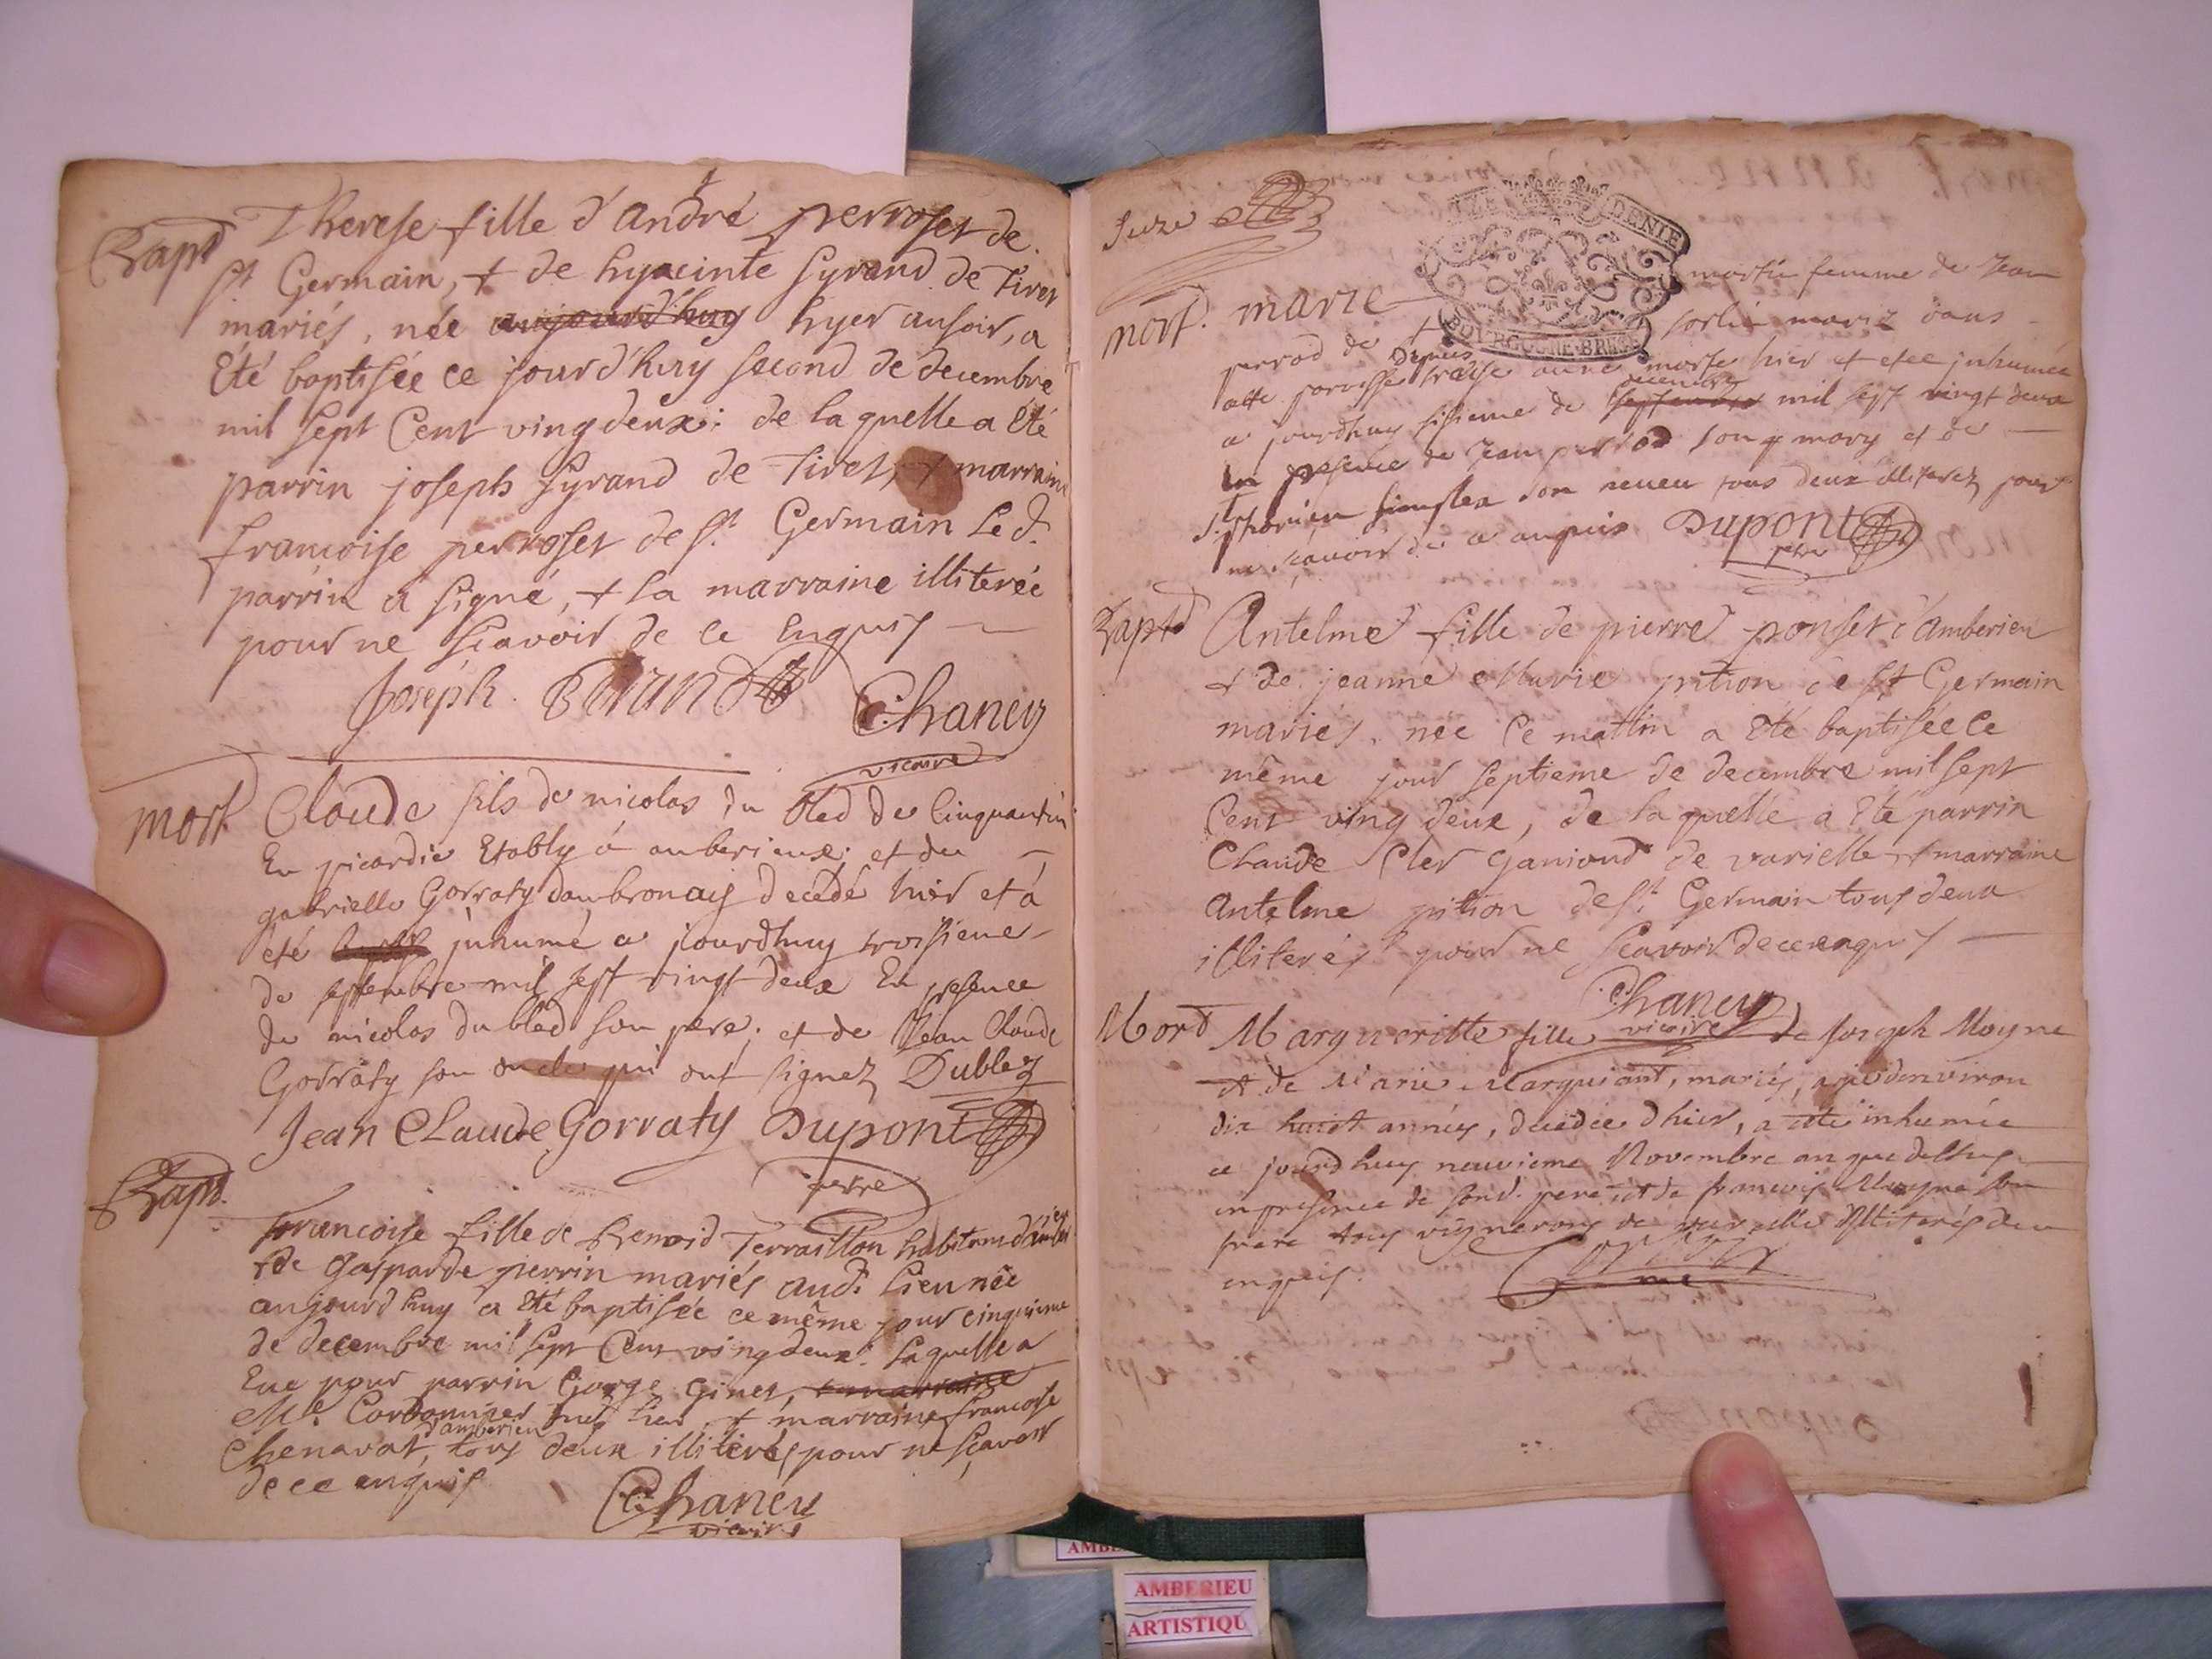 Bapt Therese fille d'andré perroset de
st Germain, & de hyacinte syrand de Tiret
mariés, née aujourd'huy hyer ausoir, a
Eté baptisée ce jourd'huy second de decembre
mil sept Cent vingdeux: de laquelle a Eté
parrin joseph syrand de Tiret, & marraine
francoise perroset de st. Germain Le d.
parrin a signé, & la marraine illiterée
pour ne sçavoir de ce Enquis
Joseph SIRAND Chaney
vicaire
mort Claude fils de nicolas du bled de
En picardie Etably à amberieux; et de
gabrielle Gorraty dambronay decedé hier et a
eté inhumé ce jourdhuy troisieme
de septembre mil sept vingt deux En presence
de nicolas dubled son pere; et de Jean Claude
Gorraty son oncle qui ont signez Dublez
Jean Claude Gorraty Dupont
Bapt.
francoise fille de Terraillon habitant
& de gasparde pierrin mariés aud. Lieu née
aujourd'huy a Eté baptisée ce même jour cinquieme
de decembre mil sept Cent vingdeux: Laquelle a
Eue pour parrin George Ginet, & marraine
& marraine francoise
d'amberieu
Chenavat, tous deux illiterés pour ne sçavoir
de ce enquis
Chaney
vicaire
DENIE
BOURGOGNE BRESSE
mort. marie femme de Jean
perrod de mariez dans
depuis
cette paroisse traize morte hier et etee inhumée
decembre
ce jourdhuy sisieme de septembre mil sept vingt deux
En presence de Jean perrod son mary et de
son neveu tous deux illiterez pour
ne sçavoir de ce enquis Dupont
Bapt Antelme fille de pierre ponset d'amberieu
& de jeanne Marie pition de st Germain
mariés, née Ce mattin a Eté baptisée Ce
même jour septieme de decembre mil sept
Cent ving deux, de laquelle a Eté parrin
Claude Cler Ganioud de varielle & marraine
Antelme pition de st. Germain tous deux
illiterés pour ne sçavoir de ce enquis
Chaney
vicaire
Mort Margueritte fille de Joseph Moyne
& de Marie Marguiant, mariés, agée denviron
dix huict années, decedée dhier, a été inhumée
ce jourd huy neuvieme Novembre an que dessus
en presence de sond. pere et de francois Moyne son
frere tous vignerons de varielle Illiterés de ce
enquis.
AMBERIEU
ARTISTIQU